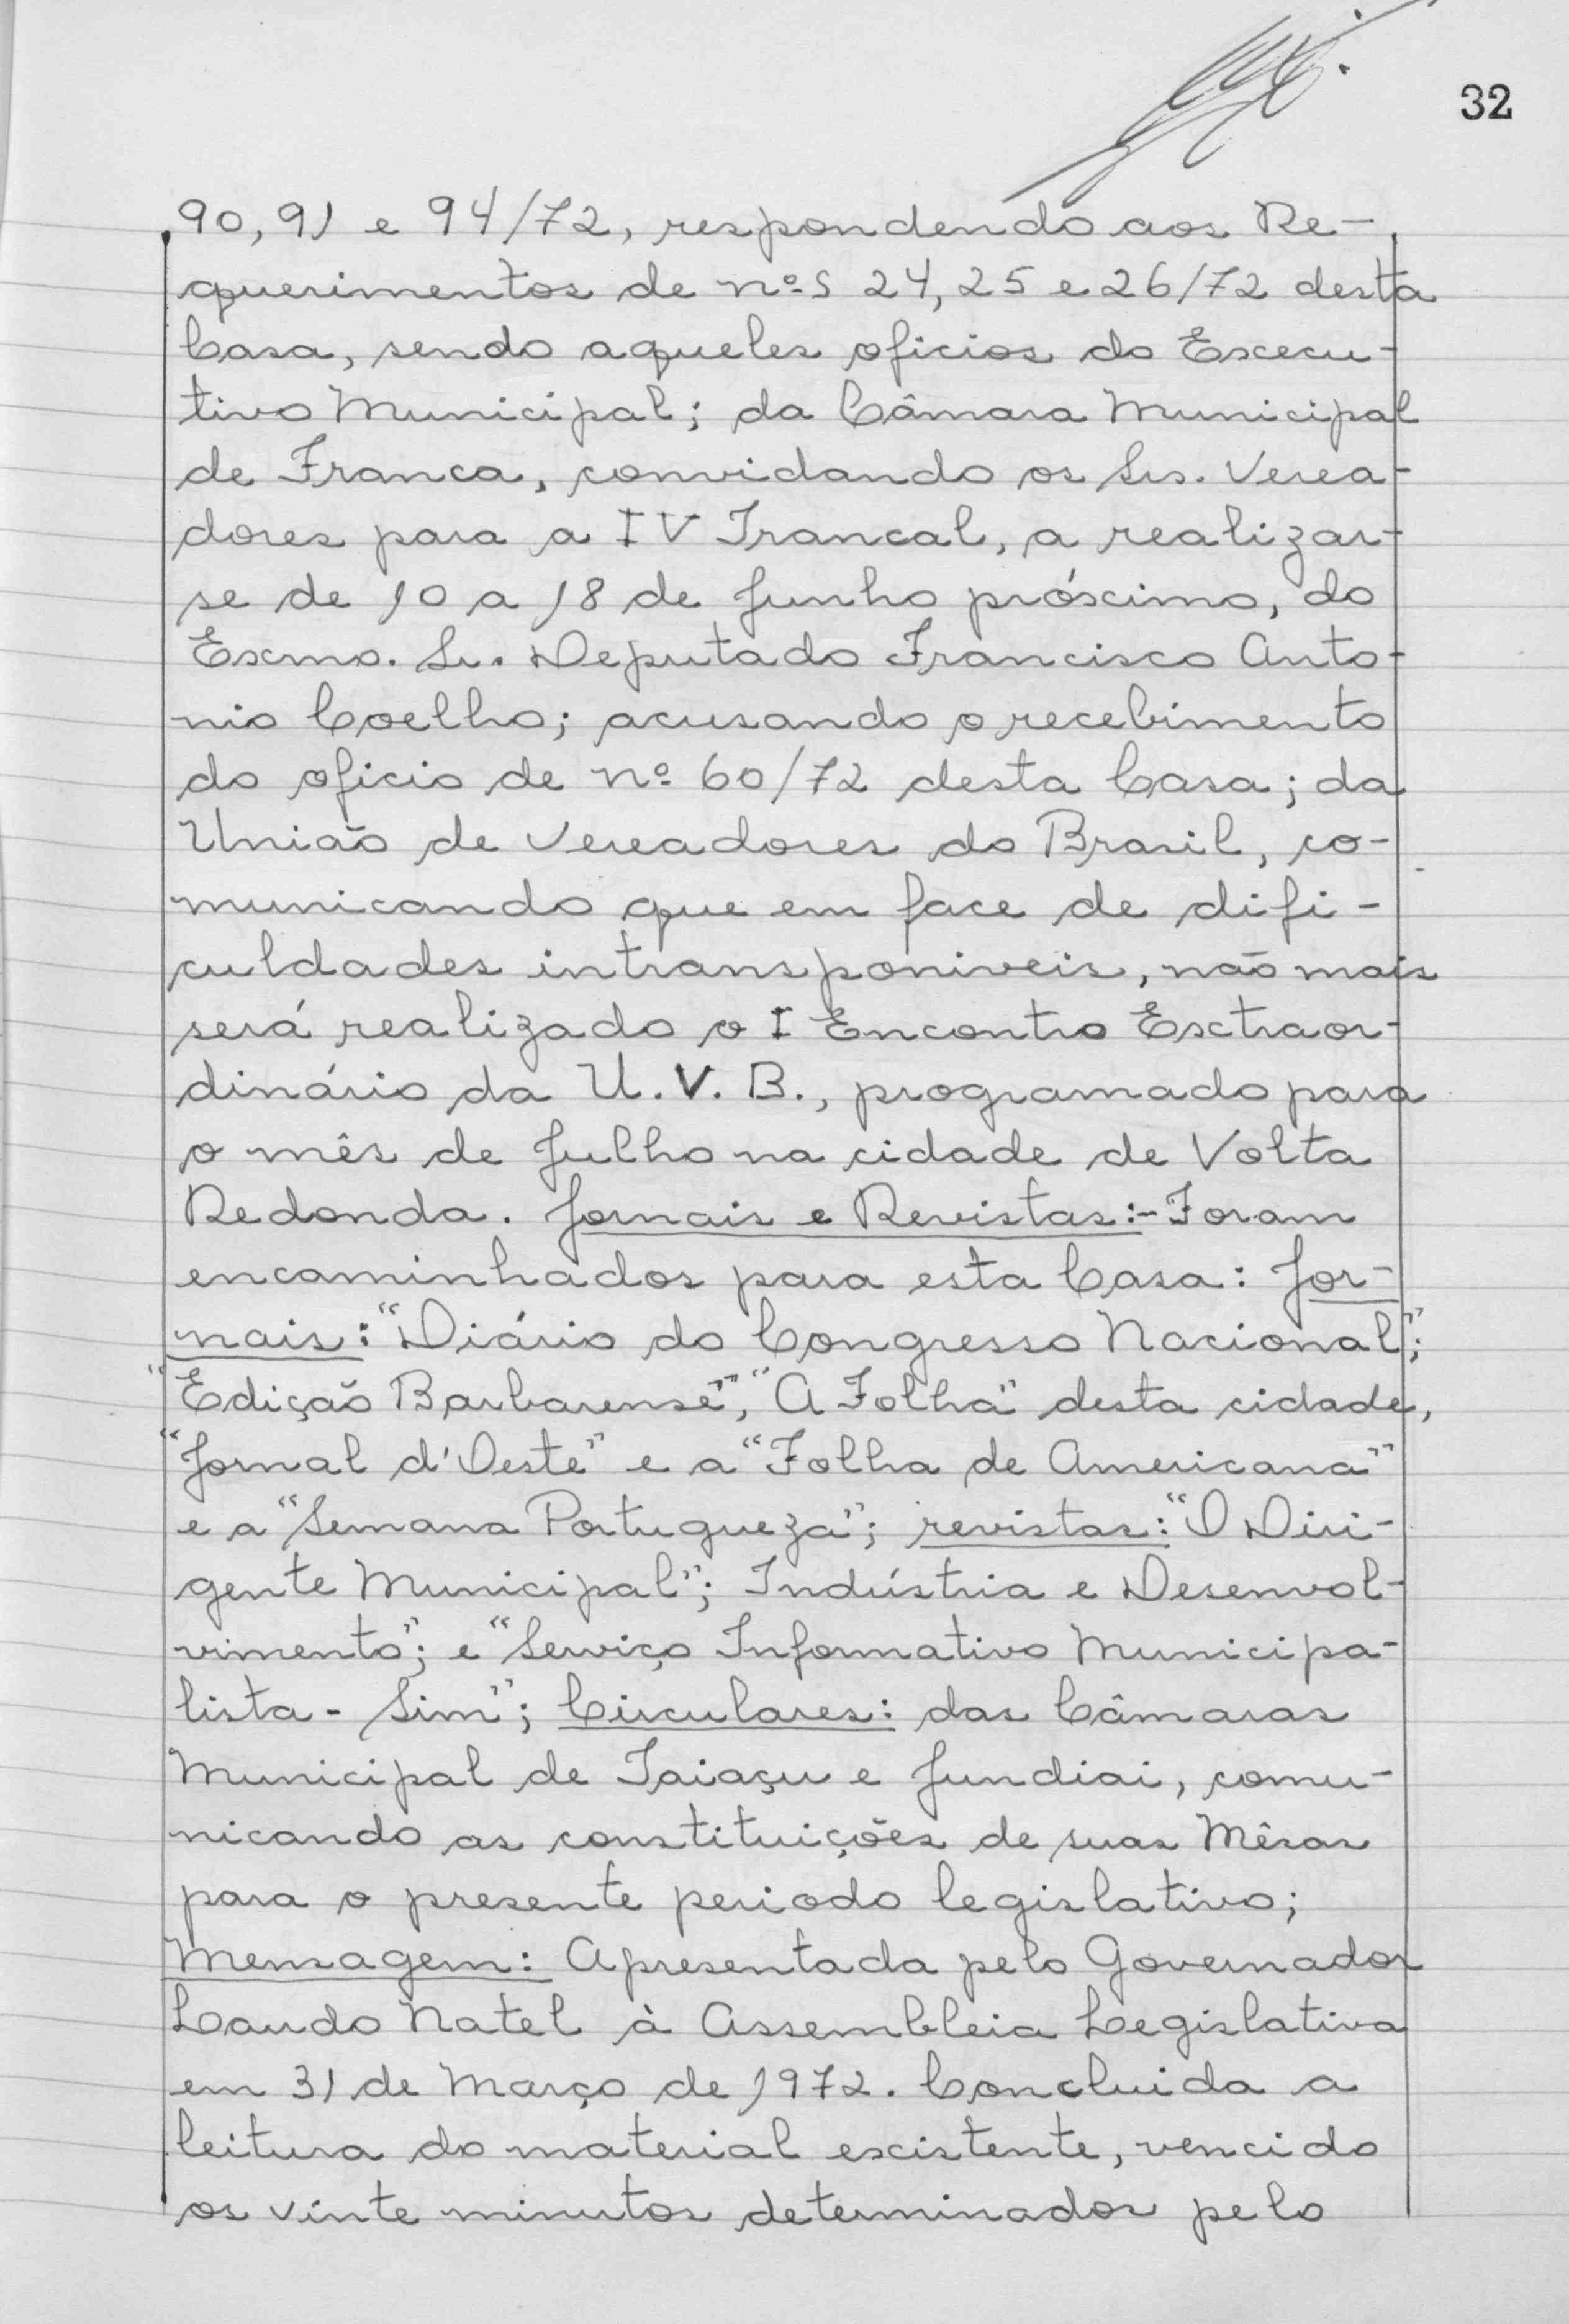 32
90, 91 e 94/72, respondendo aos Re-
querimentos de nºs 24, 25 e 26/72 desta
Casa, sendo aqueles oficios do Execu-
tivo Municipal; da Câmara Municipal
de Franca, convidando os Srs. Verea-
dores para a IV Francal, a realizar-
se de 10 a 18 de Junho próximo, do
Exmo. Sr. Deputado Francisco Anto-
nio Coelho; acusando o recebimento
do oficio de nº 60/72 desta Casa; da
União de Vereadores do Brasil, co-
municando que em face de difi-
culdades intransponiveis, não mais
será realizado o I Encontro Extraor-
dinário da U. V. B., programado para
o mês de Julho na cidade de Volta
Redonda. Jornais e Revistas:- Foram
encaminhados para esta Casa: Jor-
nais: "Diário do Congresso Nacional";
"Edição Barbarense", "A Folha" desta cidade,
"Jornal d'Oeste" e a "Folha de Americana"
e a "Semana Portugueza"; revistas: "O Diri-
gente Municipal"; Indústria e Desenvol-
vimento"; e "Serviço Informativo Municipa-
lista - Sim"; Circulares: das Câmaras
Municipal de Taiaçu e Jundiai, comu-
nicando as constituições de suas Mêsas
para o presente periodo legislativo;
Mensagem: Apresentada pelo Governador
Laudo Natel à Assembleia Legislativa
em 31 de Março de 1972. Concluida a
leitura do material existente, vencido
os vinte minutos determinados pelo